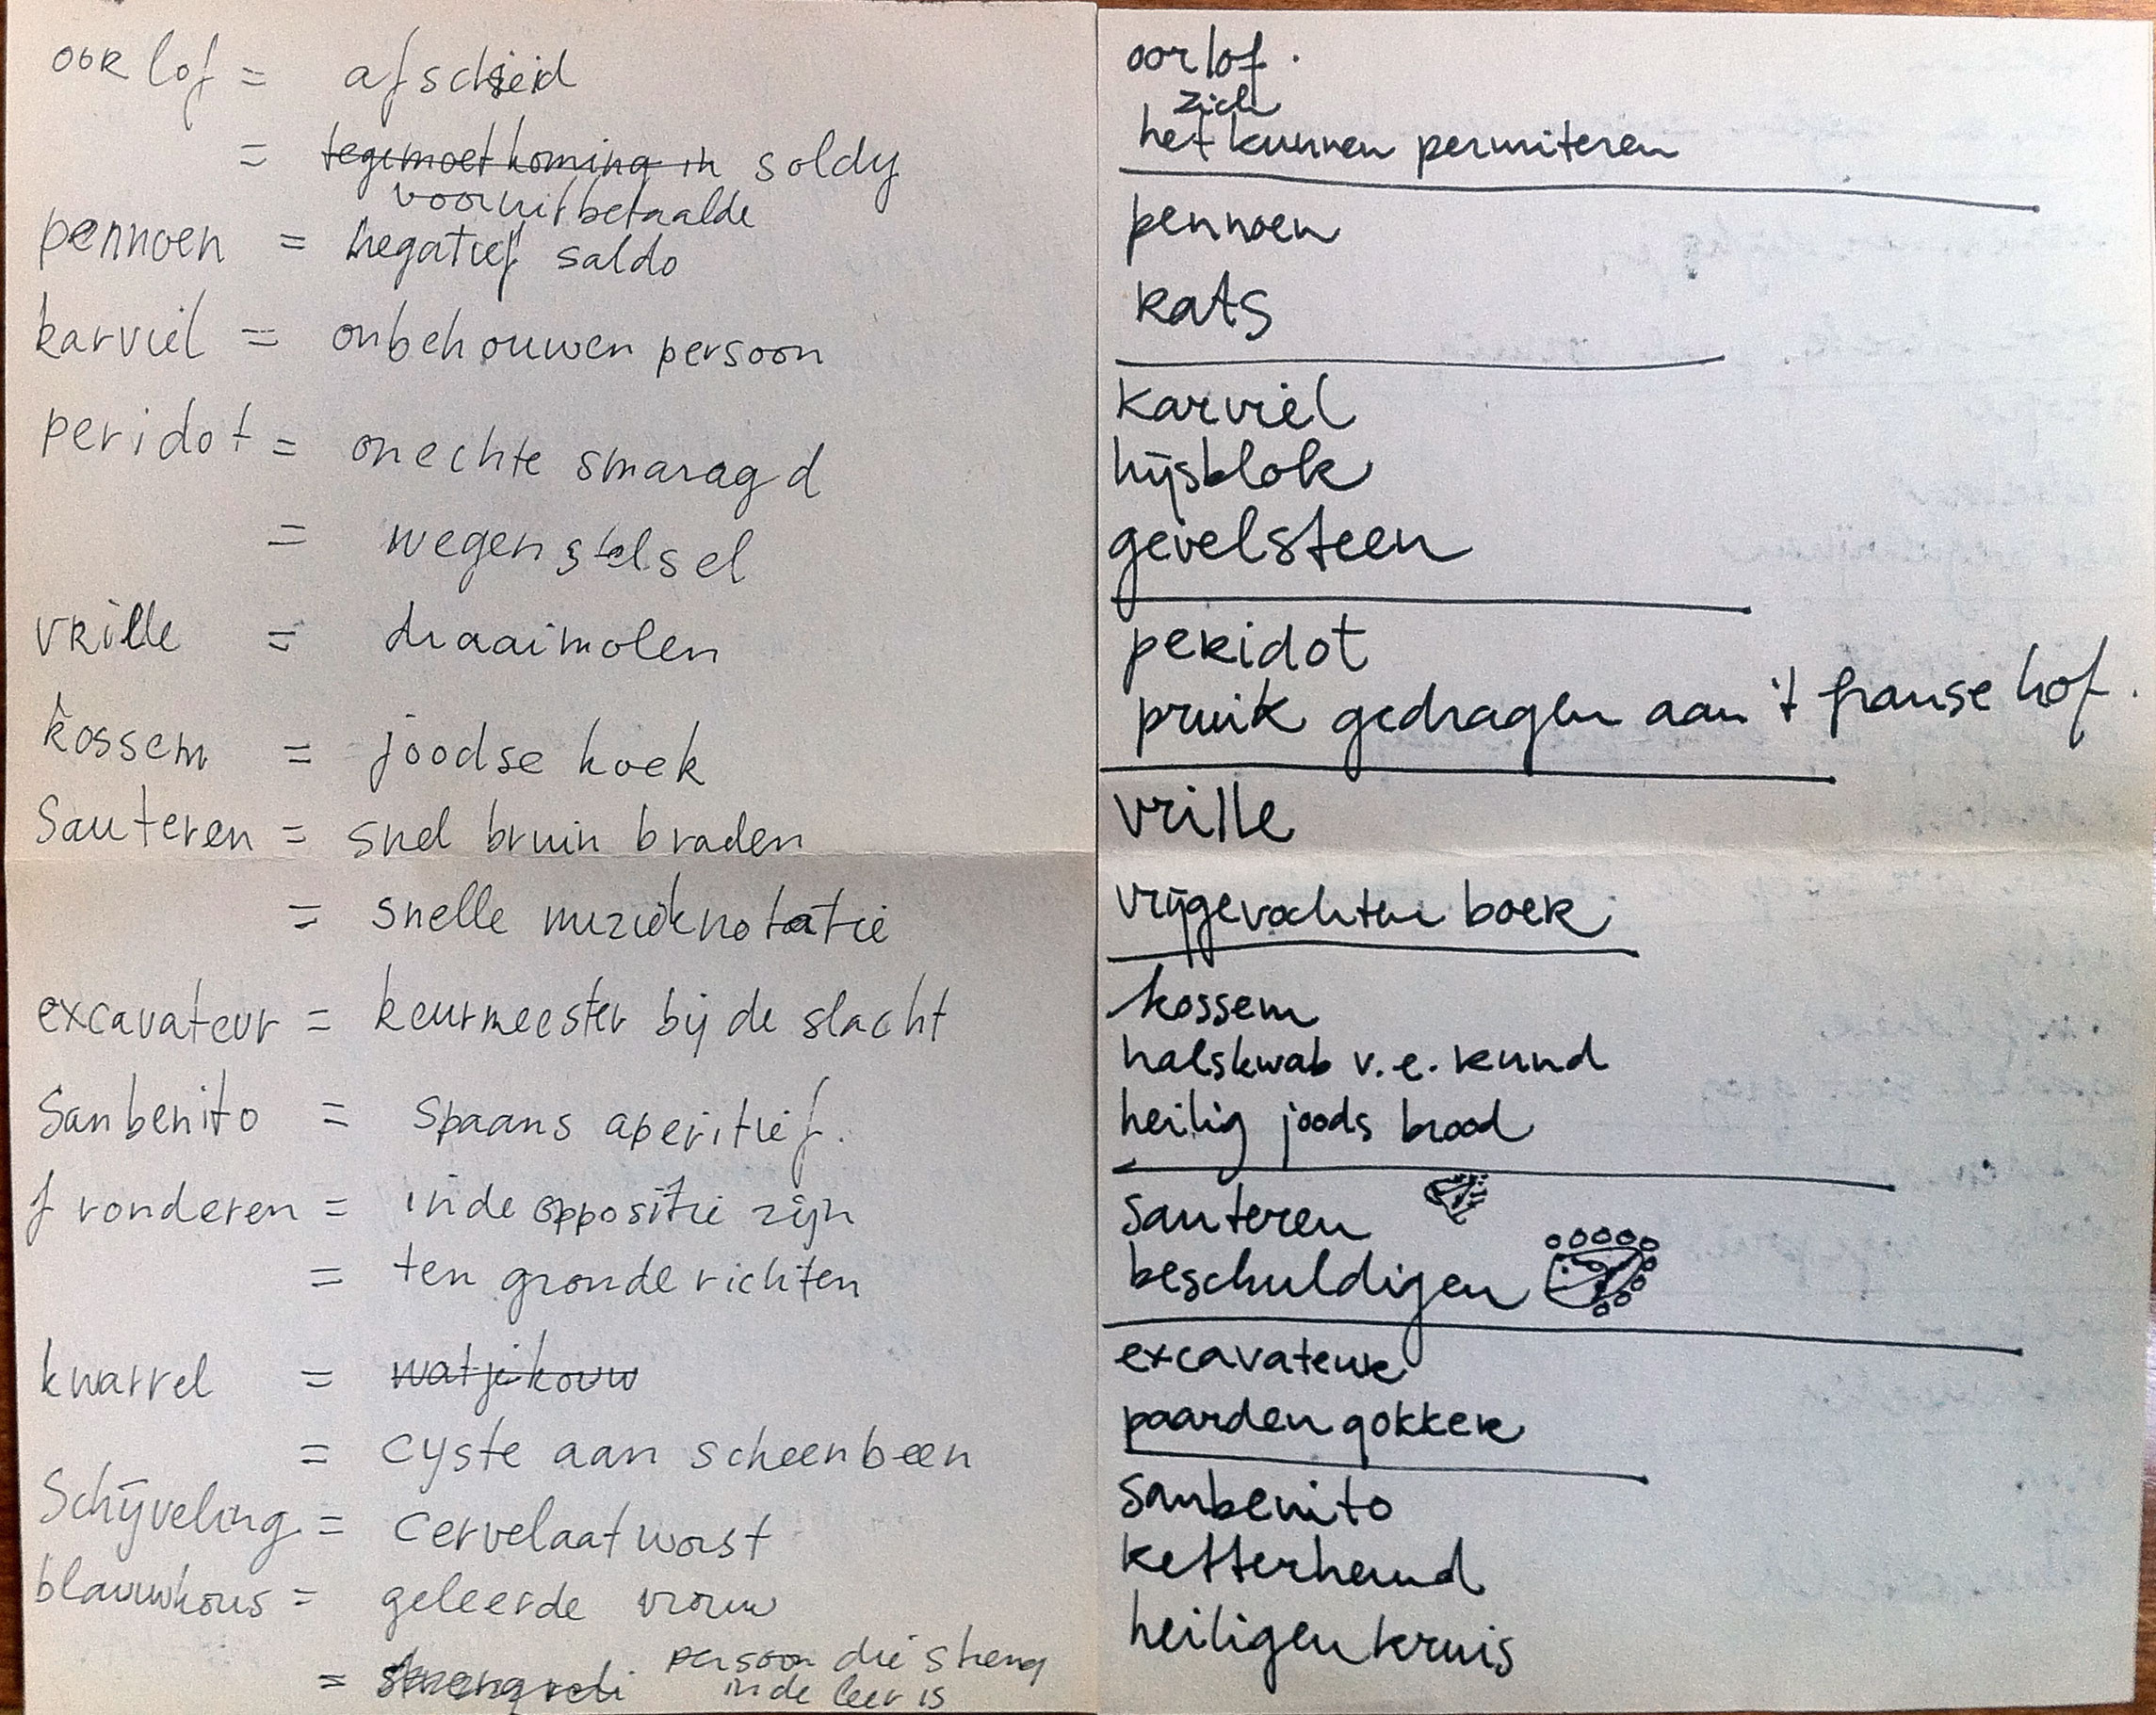 oorlof = afscheid
= tegemoetkoming in soldy
vooruitbetaalde
pennoen = negatief saldo
karviel = onbehouwen persoon
peridot = onechte smaragd
= wegenstelsel
vrille = draaimolen
kossem = joodse koek
Sauteren = snel bruin braden
= snelle muzieknotatie
excavateur = keurmeester bij de slacht
Sanbenito = Spaans aperitief.
fronderen = in de oppositie zijn
= ten gronde richten
kwarrel = watjekouw
= cyste aan scheenbeen
Schijveling = cervelaatworst
blauwkous = geleerde vrouw
= persoon die streng
in de leer is
oorlof.
zich
het kunnen permiteren
pennoen
kats
karviel
hijsblok
gevelsteen
peridot
pruik gedragen aan 't franse hof.
vrille
vrijgevochten boek
kossem
halskwab v.e. rund
heilig joods brood
sauteren
beschuldigen
excavateur
paardengokker
sanbenito
ketterhemd
heiligenkruis